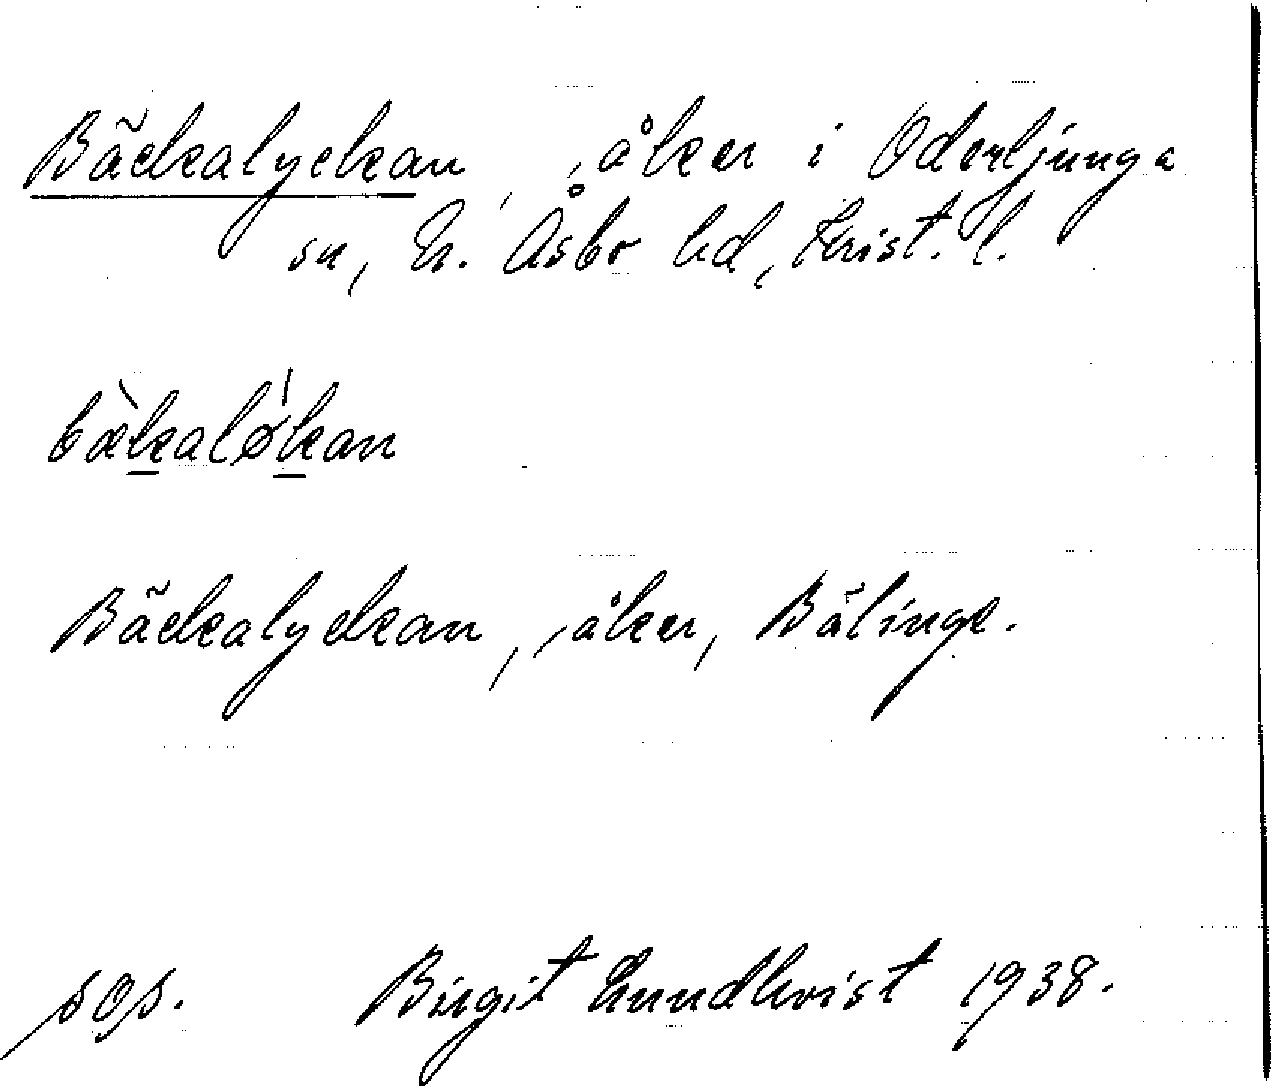 Bäckalyckan, åker i Oderljunga
sn, N. Åsbo hd, Krist. l.
bàkaløkan
Bäckalyckan, åker, Bälinge.
sgs. Birgit Lundkvist 1938.